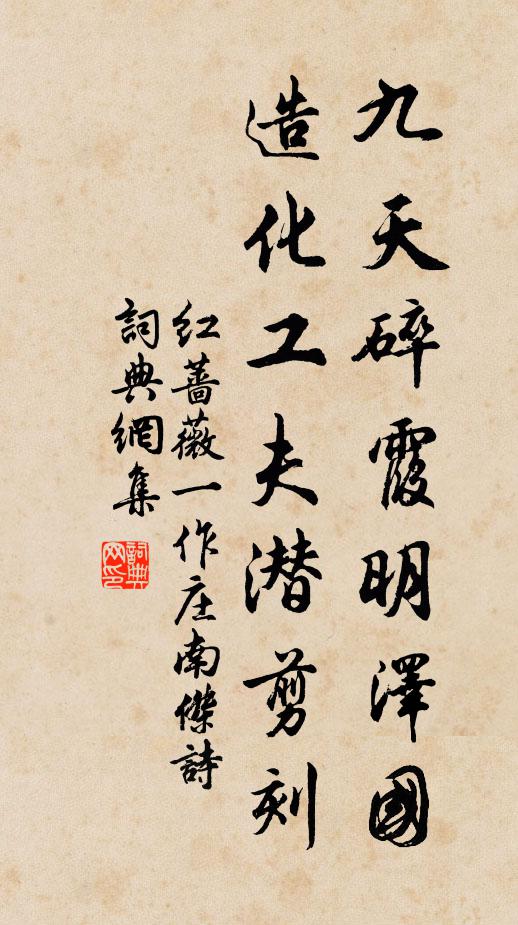 九天碎霞明澤國
造化工夫潜剪刻
红蔷薇一作庄南傑詩
詞典網集
詞典网印